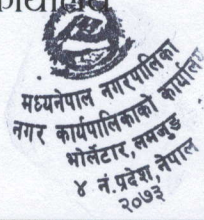 मध्यनेपाल नगरपालिका
नगर कार्यपालिकाको कार्यालय
भोर्लेटार, लमजुङ
४ नं.प्रदेश, नेपाल
२०७३